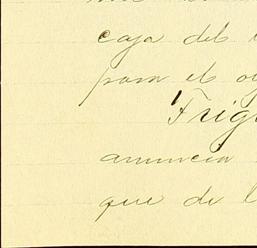 caja del
para el
Trigu
anuncia
que de l